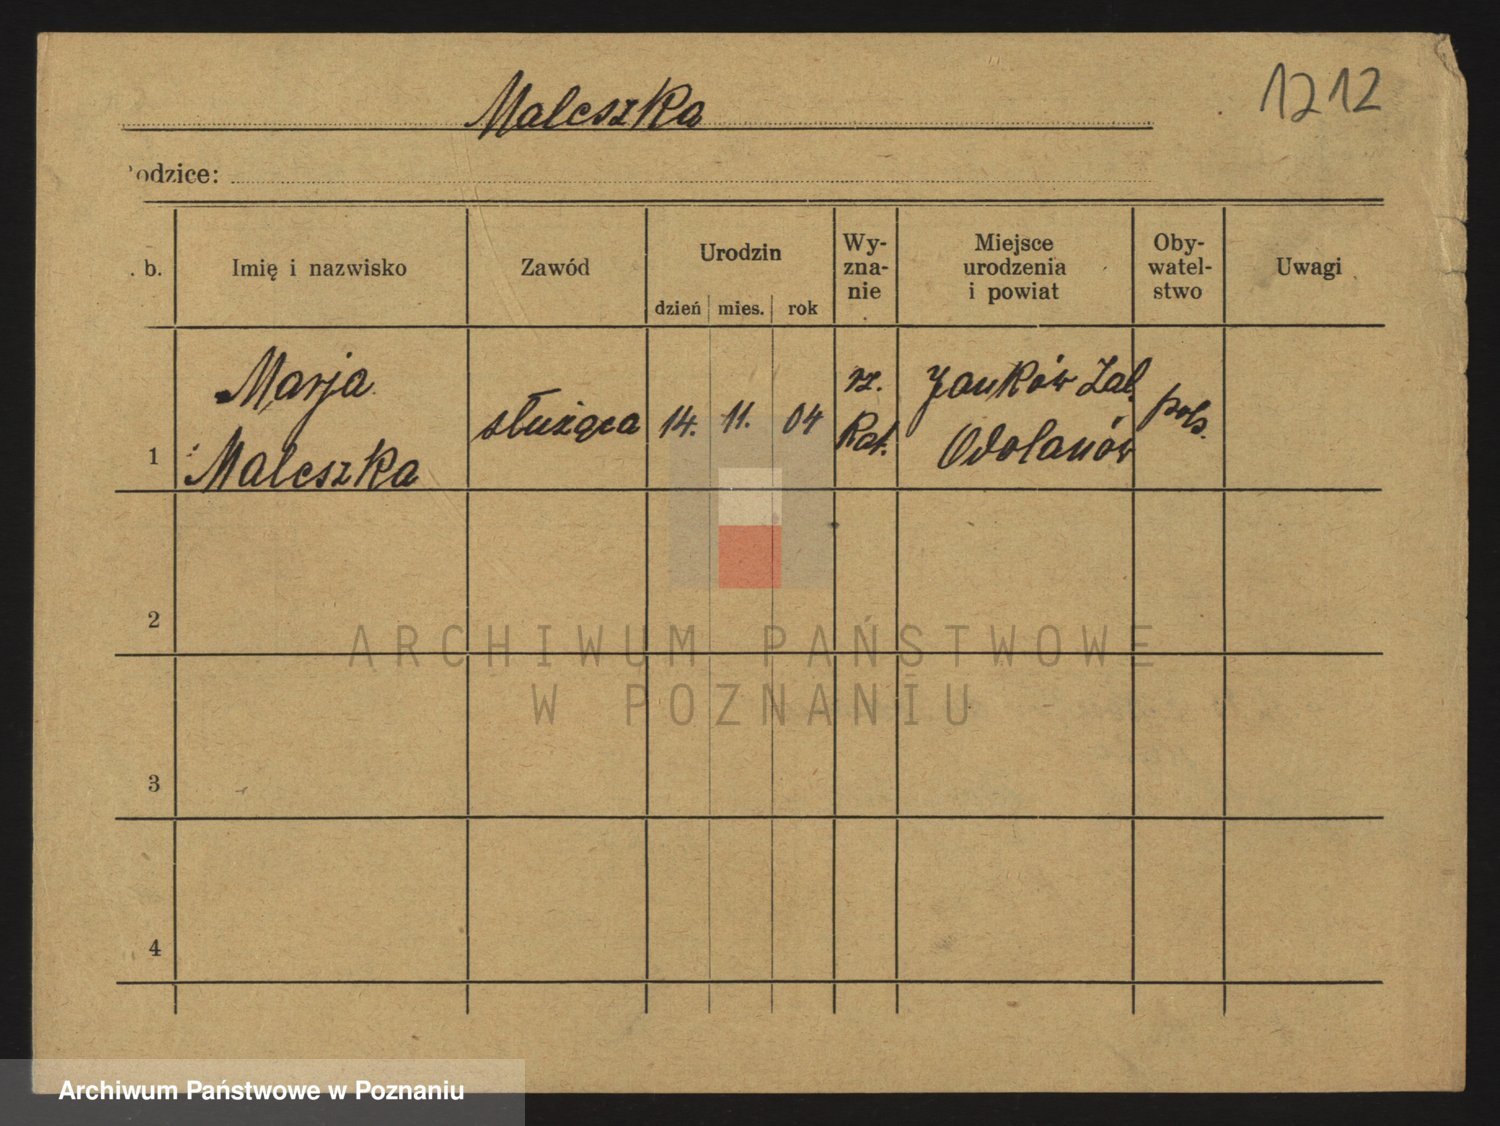 Malcszka
1212
odzice:
. b.
Imię i nazwisko
Zawód
Urodzin
dzień mies. rok
Wy-
zna-
nie
Miejsce
urodzenia
i powiat
Oby-
watel-
stwo
Uwagi
1
Marja
Malcszka
służąca
14. 11. 04
rz.
Kat.
Janków Zal.
Odolanów
pols.
2
3
4
ARCHIWUM PAŃSTWOWE
W POZNANIU
Archiwum Państwowe w Poznaniu